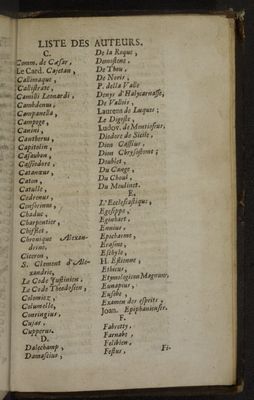 LISTE DES AUTEURS.
C.
Comm. de Cæsar,
Le Card. Cajetan,
Callimaque,
Callistrate,
Camilli Leonardi,
Cambdenus,
Campanella,
Campege,
Canini,
Cantherus,
Capitolin,
Casaubon,
Cassiodore,
Catanæus,
Caton,
Catulle,
Cedrenus,
Censorinus,
Chaduc,
Charpentier,
Chifflet,
Chronique Alexan-
drine,
Ciceron,
S. Clement d'Ale-
xandrie,
Le Code Justinien,
Le Code Theodosien,
Colomiez,
Columelle,
Conringius,
Cujas,
Cupperus.
D.
Dalechamp,
Damascius,
De la Roque,
Demostene,
De Thou,
De Noris,
P. della Valle
Denys d'Halycarnasse,
De Vallois,
Laurens de Lucques;
Le Digeste,
Ludov. de Montiosius;
Diodore de Sicile,
Dion Cassius,
Dion Chrysostome;
Doublet,
Du Cange,
Du Choul,
Du Moulinet.
E.
L'Ecclesiastique,
Egesippe,
Eginhart,
Ennius,
Epicharme,
Erasme,
Eschyle,
H. Estienne,
Ethicus,
Etymologicon Magnum,
Eunapius,
Eusebe,
Examen des esprits,
Joan.
F.
Fabretty,
Farnabe,
Felibien,
Festus,
Fi-